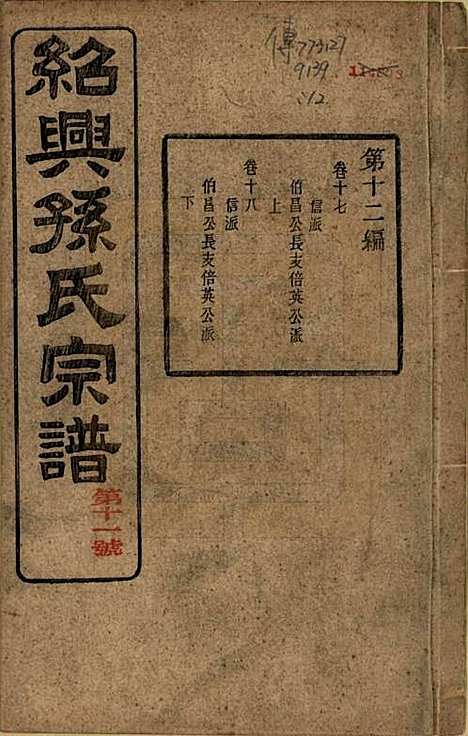 紹興孫氏宗譜
第十一號
第十二編
卷十七
信派
伯昌公長支倍英公派
上
卷十八
信派
伯昌公長支倍英公派
下
傳773127
9139
:12